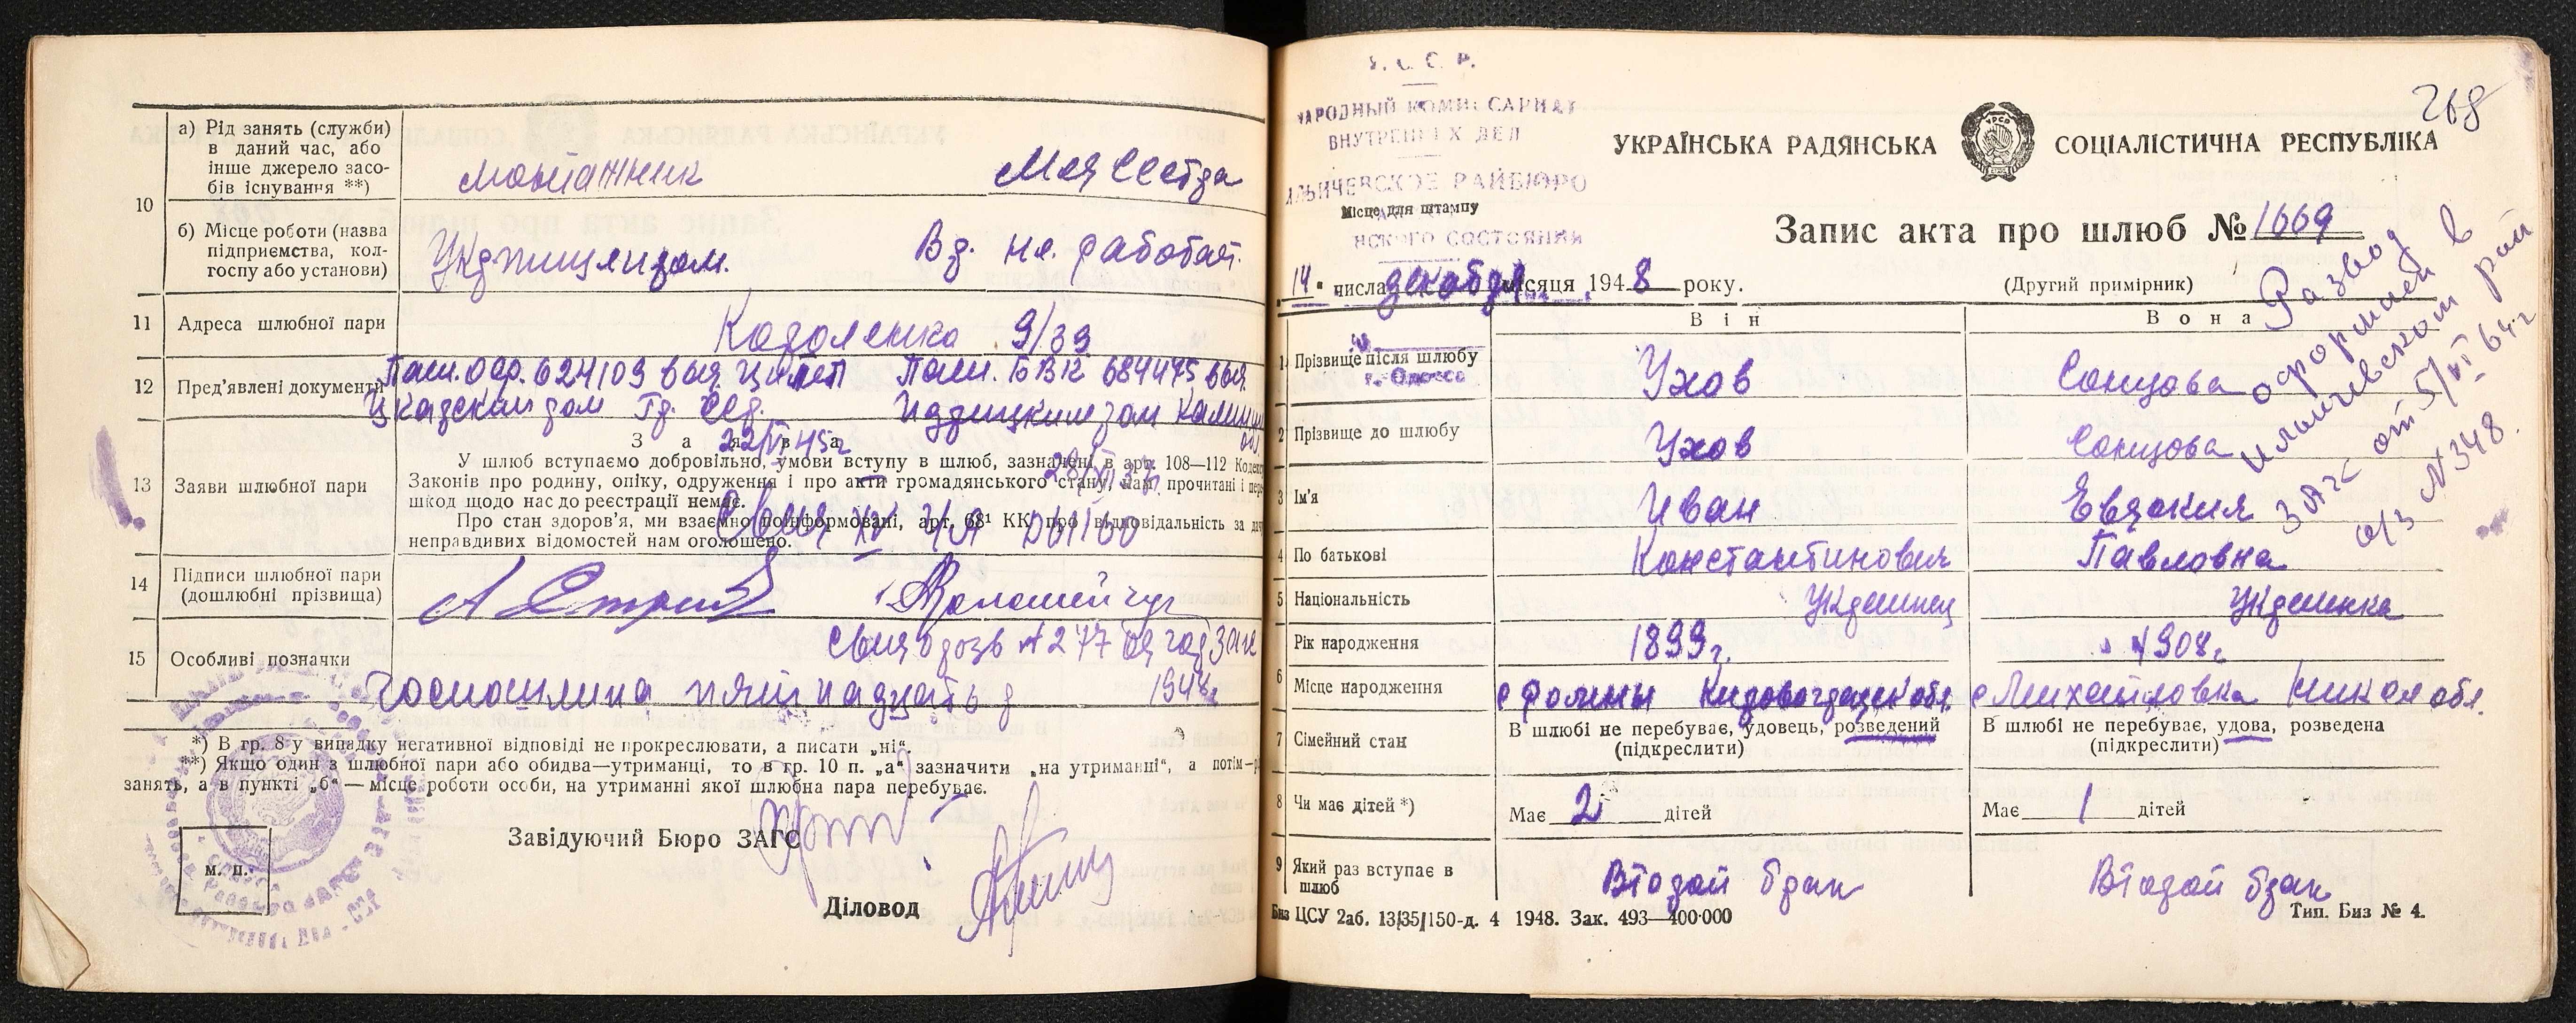 а) Рід занять (служби)
в даний час, або
інше джерело засо-
бів існування **)
10
монтажник
Мед Сестра
б) Місце роботи (назва
підприємства, кол-
госпу або установи)
не работает.
11 Адреса шлюбної пари
Короленка 9/39
12 Пред'явлені документи
624109 выд.
Пасп. 684475 выд.
З а я в а
22/VI 45г
13 Заяви шлюбної пари
У шлюб вступаємо добровільно, умови вступу в шлюб, зазначені в арт. 108—112 Кодексу
Законів про родину, опіку, одруження і про акти громадянського стану, нам прочитані і
шкод щодо нас до реєстрації немає.
Про стан здоров'я, ми взаємно поінформовані, арт. 68¹ КК про відповідальність за
неправдивих відомостей нам оголошено.
14 Підписи шлюбної пари
(дошлюбні прізвища)
15 Особливі позначки
277
Госпошлина пятнадцать р
1948г
*) В гр. 8 у випадку негативної відповіді не прокреслювати, а писати „ні“.
**) Якщо один з шлюбної пари або обидва—утриманці, то в гр. 10 п. „а“ зазначити „на утриманні“, а потім
занять, а в пункті „б“ — місце роботи особи, на утриманні якої шлюбна пара перебуває.
Завідуючий Бюро ЗАГС
м. п.
Діловод
У. С. С. Р.
НАРОДНЫЙ КОМИССАРИАТ
ВНУТРЕННИХ ДЕЛ
ИЛЬИЧЕВСКОЕ РАЙБЮРО
Місце для штампу
СОСТОЯНИЯ
г. Одесса
268
УКРАЇНСЬКА РАДЯНСЬКА СОЦІАЛІСТИЧНА РЕСПУБЛІКА
Запис акта про шлюб № 1669
14 " числа декабря місяця 1948 року.
(Другий примірник)
Развод
оформлен в
Ильичевском рай
ЗАГС от 5/VI 64г
а/з N 348.
Він
Вона
1 Прізвище після шлюбу
Ухов
Сонцова
2 Прізвище до шлюбу
Ухов
Сонцова
3 Ім'я
Иван
Евдокия
4 По батькові
Константинович
Павловна
5 Національність
Украинец
Украинка
Рік народження
1899г.
1908г.
6 Місце народження
Кировоградск обл.
с Михайловка Никол обл.
7 Сімейний стан
В шлюбі не перебуває, удовець, розведений
(підкреслити)
В шлюбі не перебуває, удова, розведена
(підкреслити)
8 Чи має дітей *)
Має 2 дітей
Має 1 дітей
9 Який раз вступає в
шлюб
Второй брак
Второй брак
Биз ЦСУ 2аб. 13/35/150-д. 4 1948. Зак. 493—400·000
Тип. Биз № 4.